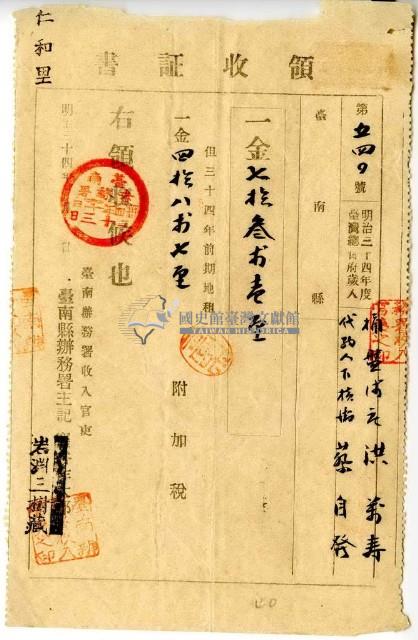 仁和里
領收証書
第五四〇號
明治三十四年度
臺灣總督府歲入
桶盤淺庄 洪萬壽
代納人下橫街 蔡自發
臺南縣
一金七拾叁錢壱厘
但三十四年前期地租
一金四拾八錢七厘
附加稅
右領收候也
明治三十四年
臺南辨務署收入官吏
臺南縣辨務署主記
岩淵三樹藏
國史館臺灣文獻館
TAIWAN HISTORICA